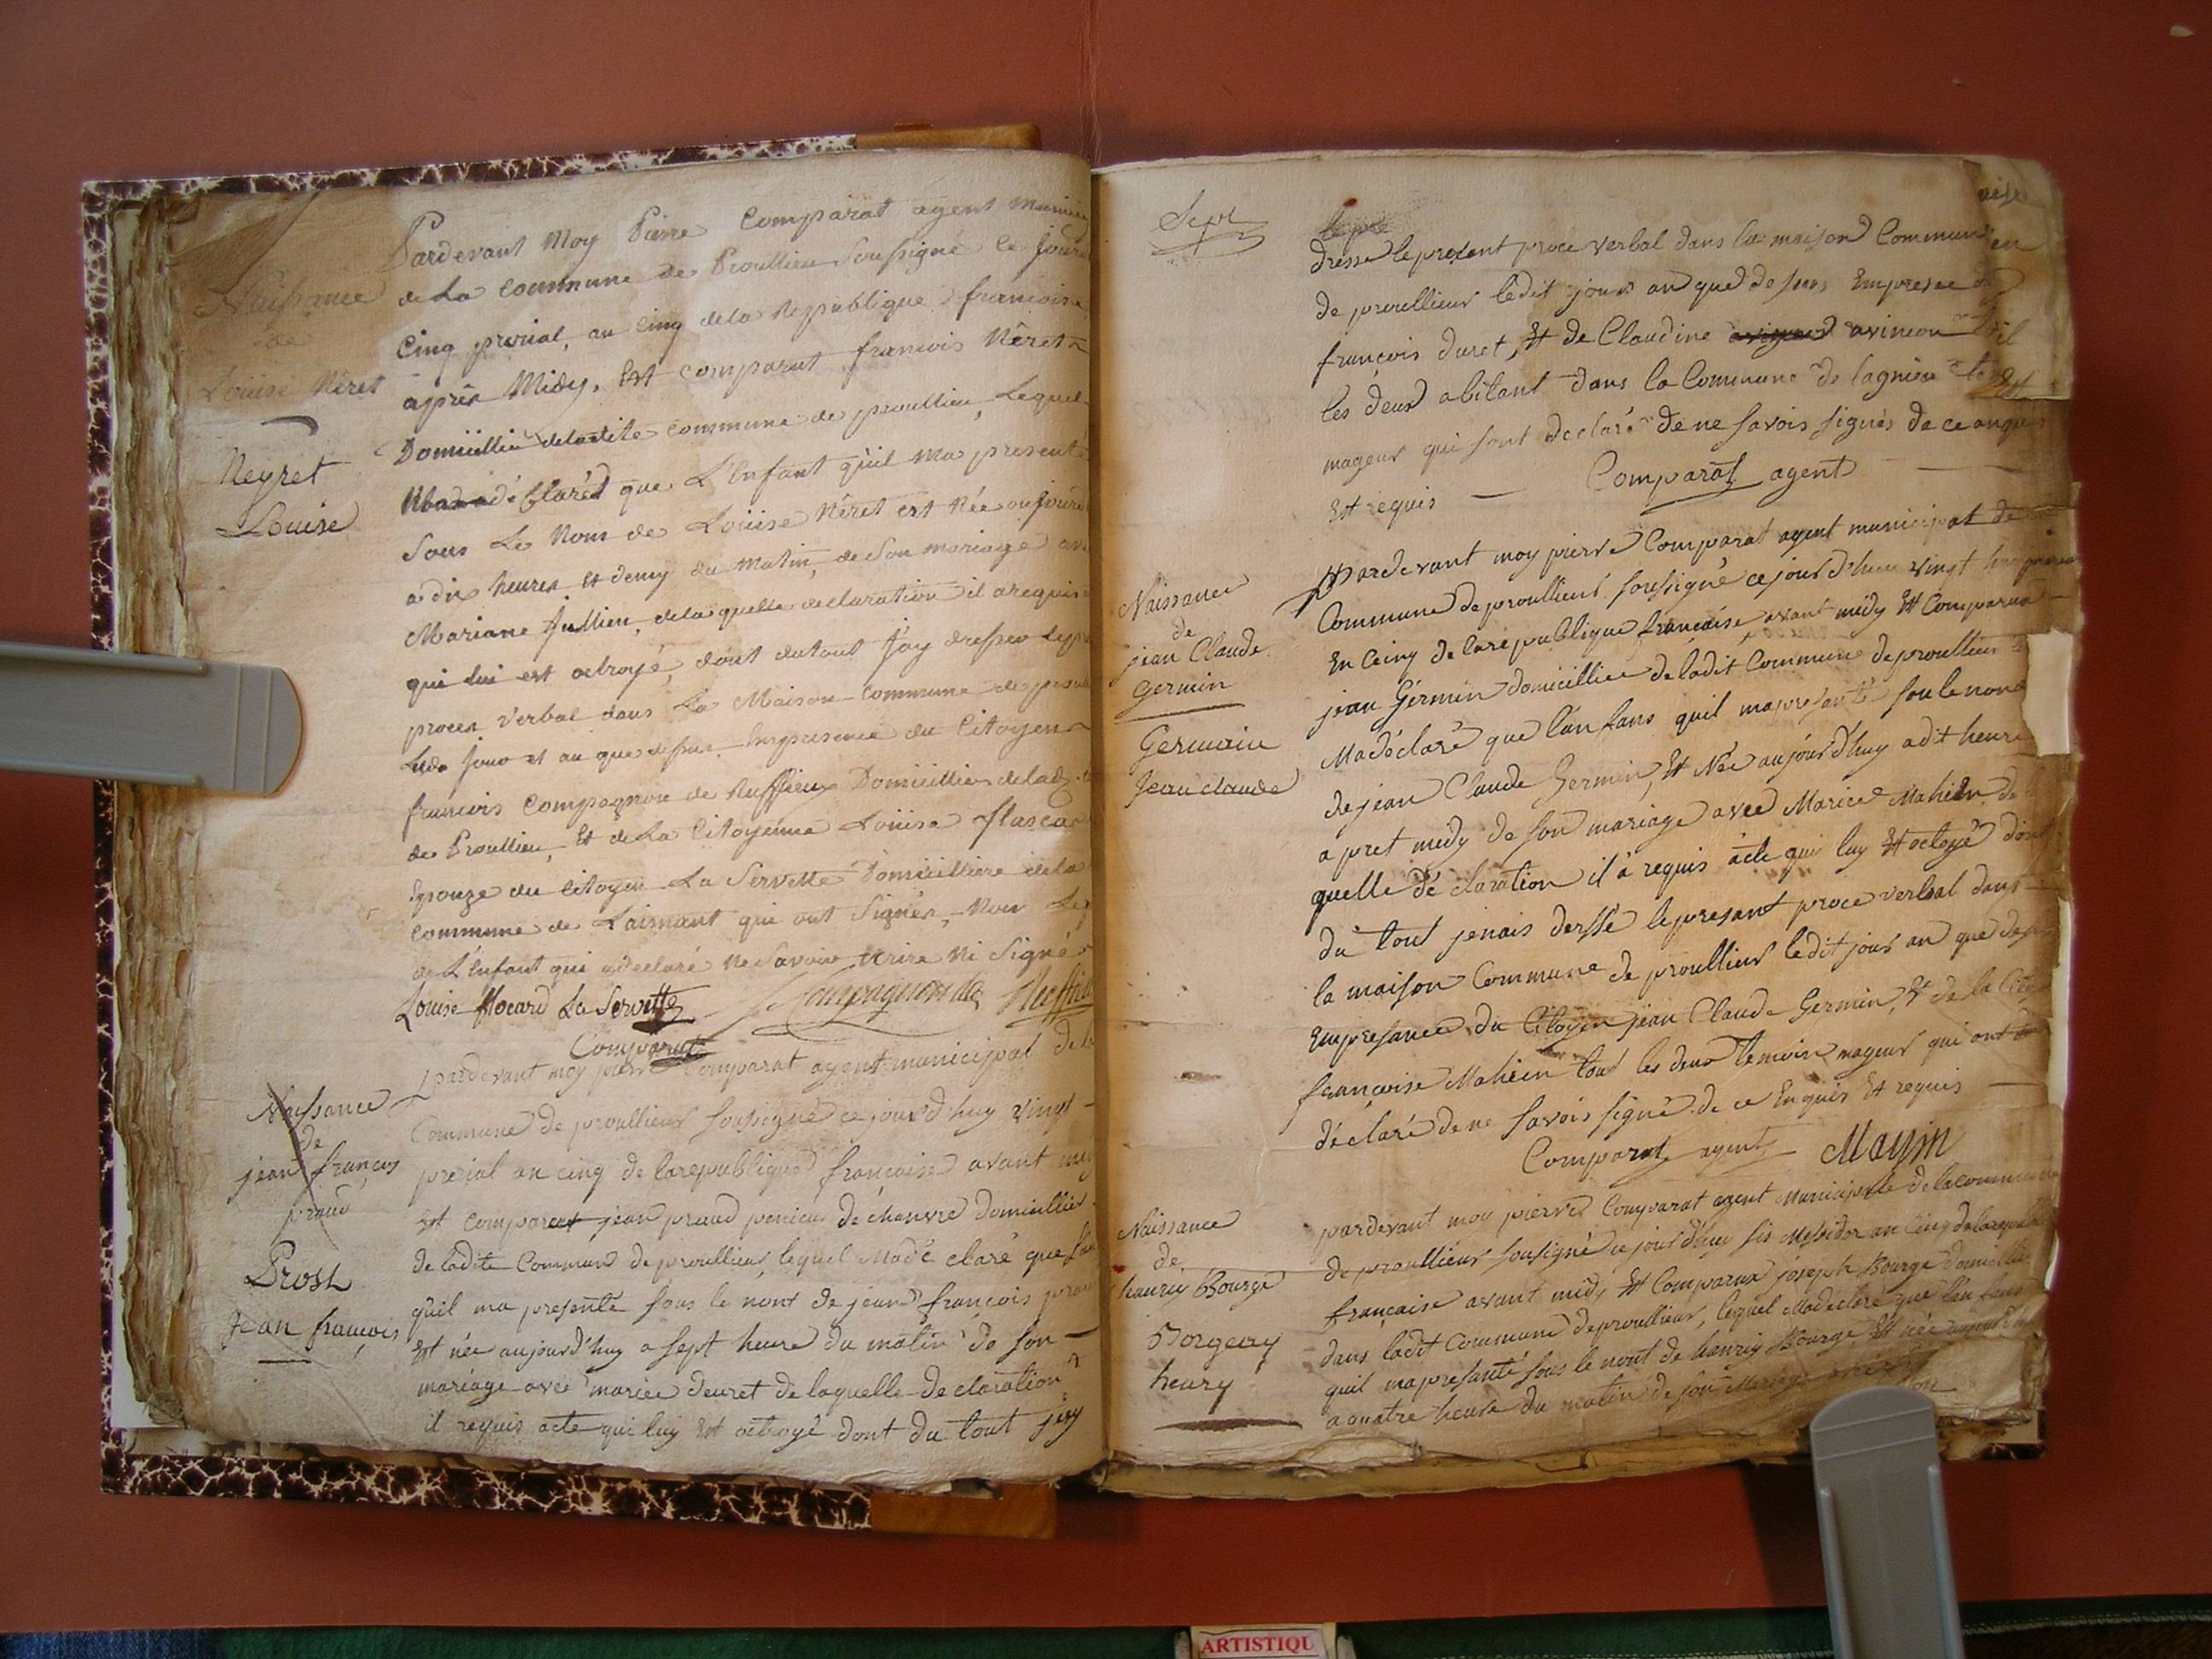 Naissance
de
Louise Néret
Neyret
Louise
Pardevant Moy Pierre Comparat agent
de La commune de Proullieu Soussigné ce
Cinq prerial, an cinq de la Republique francoise
après Midy, Est comparut francois Néret
Domicillié de ladite commune de proullieu, Lequel
déclaré que L'Enfant qu'il ma presenté
Sous Le Nom de Loüise Néret est Née
a dix heures et demy du Matin, de Son mariage
Mariane Jullien, de laquelle declaration il a requis
qui lui est octroyé, dont du tout J'ay dressée
proces verbal dans La Maison Commune de
Jour et an que dessus Enpresence du Citoyen
francois Compagnon de Ruffieu Domicillié
de Proullieu, Et de La Citoyenne Loüise
Epouze du Citoyen La Servette Domicilliere de la
commune de Laimant qui ont Signés, Non Le
de L'Enfant qui a déclaré Ne Savoir Ecrire Ni Signé
Louise La Servette Compagnon de
Comparat
Naissance
de
jean françois
praud
Prost
Jean françois
pardevant moy pierre Comparat agent municipal de la
Commune de proullieux soussigné ce jourd'huy vingt
prerial an cinq de la republique française avant
Est comparut jean praud de chanvre domicillier
de ladite Commune de proullieux lequel Ma dé claré que
qu'il ma presenté sous le nont de jean françois
Est née aujourd'huy a sept heure du matin de son
mariage avec mariee deuret de laquelle de claration
il requis acte qui luy Est octroyé dont du tout jay
Sept
dressé le presant proce verbal dans la maison Commune
de proullieux ledit jour an que dessus Empresence
françois duret, Et de Claudine avineon
les deux abitant dans la Commune de lagnieu
mageur qui sont declaré de ne savois signés de ce
Est requis
Comparat agent
Naissance
de
jean Claude
germin
Germain
Jean claude
Pardevant moy pierre Comparat agent municipal de
Commune de proullieux soussigné ce jour d'huy vingt
En Cinq de la republique française avant midy Est Comparus
jean Germin domicillier de ladit Commune de proullieux
Ma déclaré que lan fans quil ma presanté sou le nom
de jean Claude Germin, Et Née aujourd'huy a dit heure
apret midy de son mariage avec Mariee Mahien de
quelle dé claration il a requis acte qui luy Est octoyé
du tout jenais le presant proce verbal dans
la maison Commune de proullieux ledit jour an que
Empresance du Citoyen jean Claude Germin, Et de la
françoise Mahien tout les deux temoin mageur qui ont
déclaré de ne savois signé de ce Enquis Et requis
Comparat agent
Naissance
de
hanriy Bourge
Borgeay
henry
pardevant moy pierre Comparat agent Municipale de la commune
de proullieux soussigné ce jour d'huy sis Messidor an Cinq
française avant midy Est Comparus joseph Bourge
dans ladit Commune de proullieux, lequel Ma declaré que lan fans
quil ma presanté sous le nont de hanriy Bourge Est née
a quatre heure du matin de son
ARTISTIQU